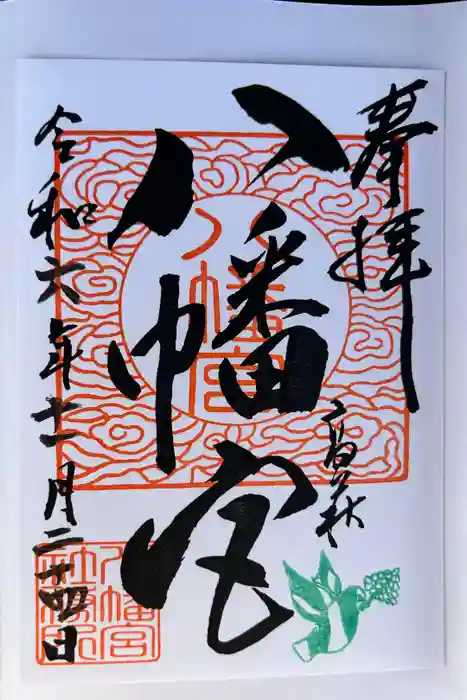 奉拝
高萩
八幡宮
八幡宮
令和六年十一月二十四日
八幡宮
社務所